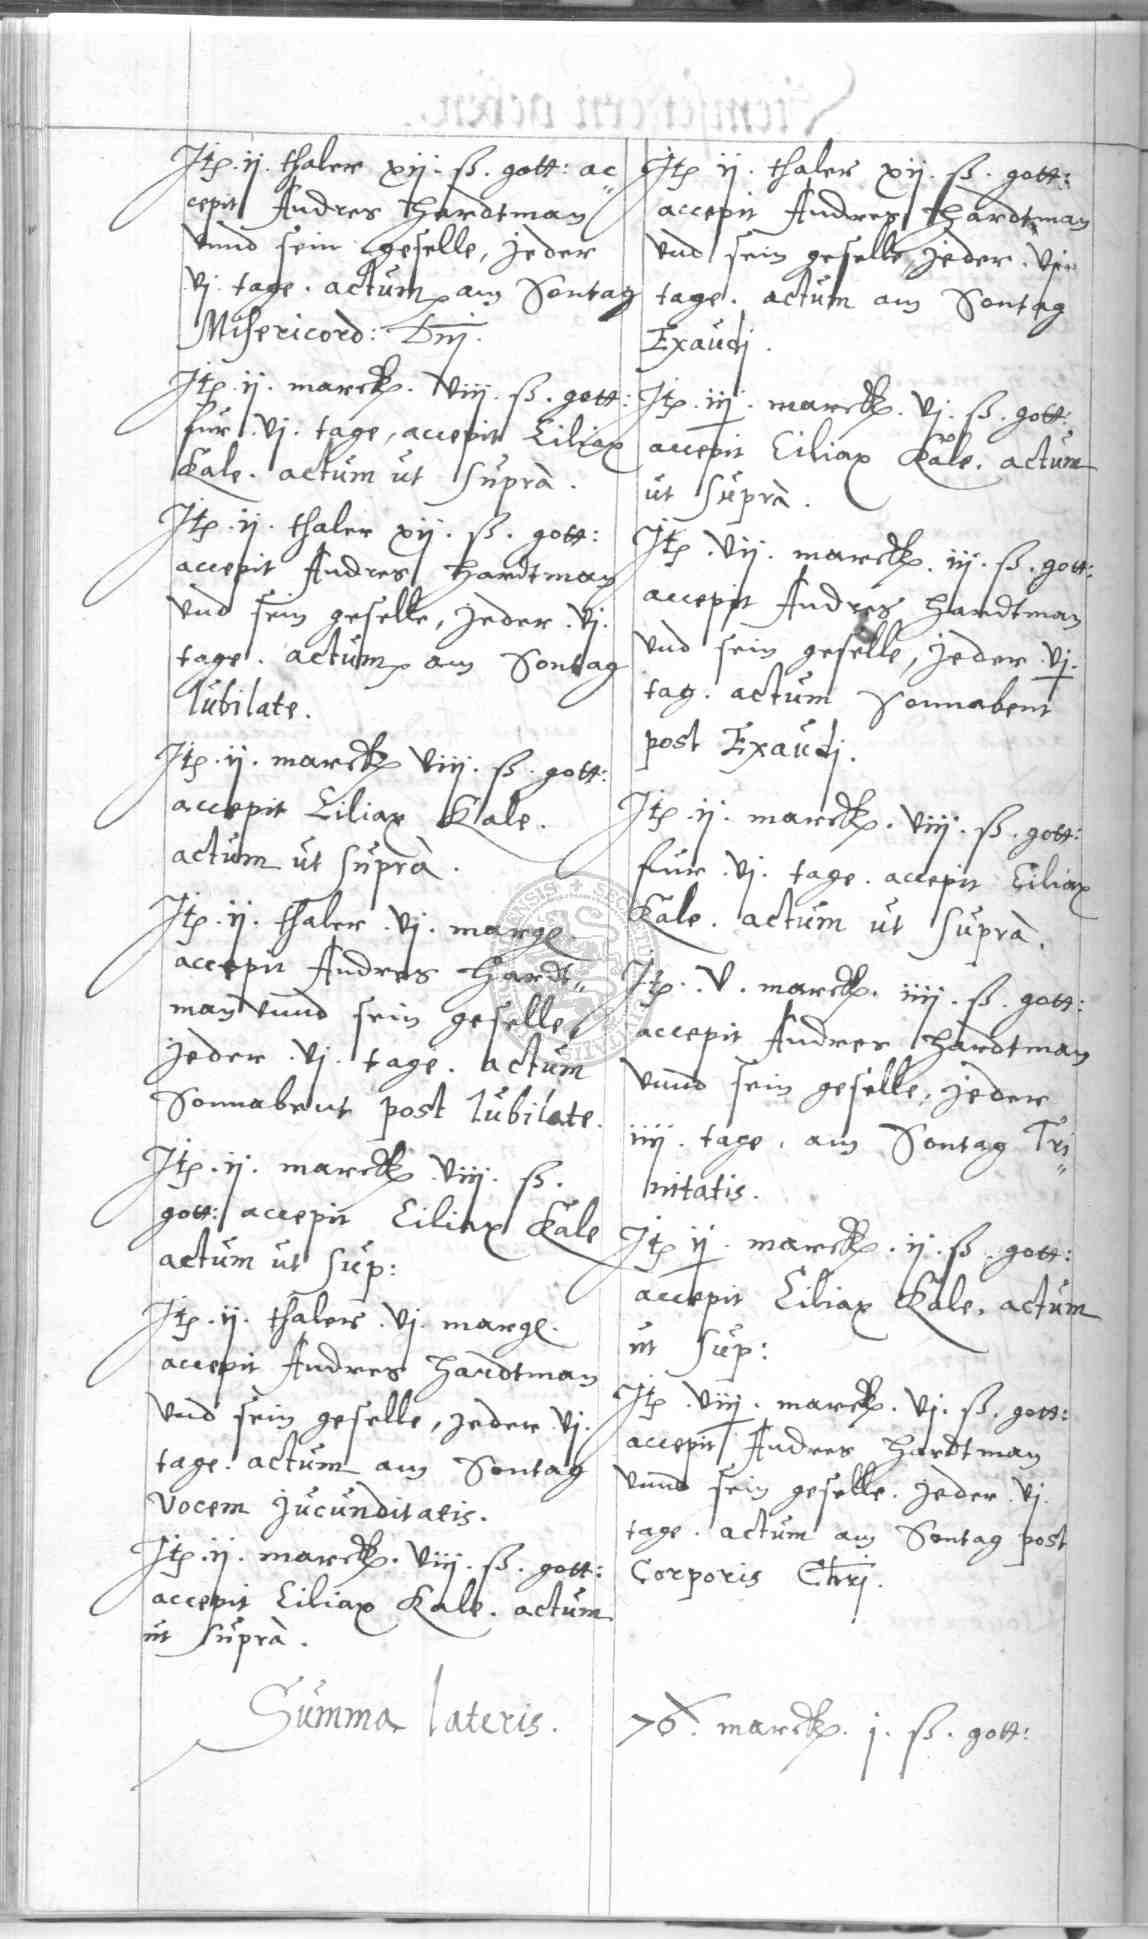 Itē. ij. thaler xij. ß. gott: ac-
cepit Andres Hardtman
vnnd sein geselle, jeder
vj. tage. actum am Sontag
Misericord: Dnj.
Itē. ij. marck. viij. ß. gott:
fur. vj. tage, accepit Ciliax
Kale. actum ut suprà.
Itē. ij. thaler xij. ß. gott:
accepit Andres Hardtman
vnd sein geselle, jeder. vj.
tage. actum am Sontag
Iubilate.
Itē. ij. marck viij. ß. gott:
accepit Ciliax Kale.
actum ut suprà.
Itē. ij. thaler. vj. marge.
accepit Andres Hardt-
man vnnd sein geselle,
jeder. vj. tage. actum
Sonnabent post Iubilate.
Itē. ij. marck viij. ß.
gott: accepit Ciliax Kale
actum ut sup:
Itē. ij. thaler. vj. marge.
accepit Andres Hardtman
vnd sein geselle, jeder. vj.
tage. actum am Sontag
Vocem jucunditatis.
Itē. ij. marck. viij. ß. gott:
accepit Ciliax Kale. actum
ut suprà.
Summa lateris.
Itē ij. thaler xij. ß. gott:
accepit Andres Hardtman
vnd sein geselle, jeder. vj.
tage. actum am Sontag
Exaudj.
Itē. iij. marck. vj. ß. gott.
accepit Ciliax Kale. actum
ut suprà.
Itē. vij. marck. iij. ß. gott:
accepit Andres Hardtman
vnd sein geselle, jeder. vj.
tag. actum Sonnabent
post Exaudj.
Itē. ij. marck. viij. ß. gott:
fur. vj. tage. accepit Ciliax
Kale. actum ut suprà.
Itē. v. marck. iiij. ß. gott:
accepit Andres Hardtman
vnnd sein geselle, jeder
iiij. tage, am Sontag Tri-
nitatis.
Itē ij. marck. ij. ß. gott:
accepit Ciliax Kale. actum
ut sup:
Itē. viij. marck. vj. ß. gott:
accepit Andres Hardtman
vnnd sein geselle. jeder. vj.
tage. actum am Sontag post
Corporis Chrj.
76. marck. j. ß. gott: